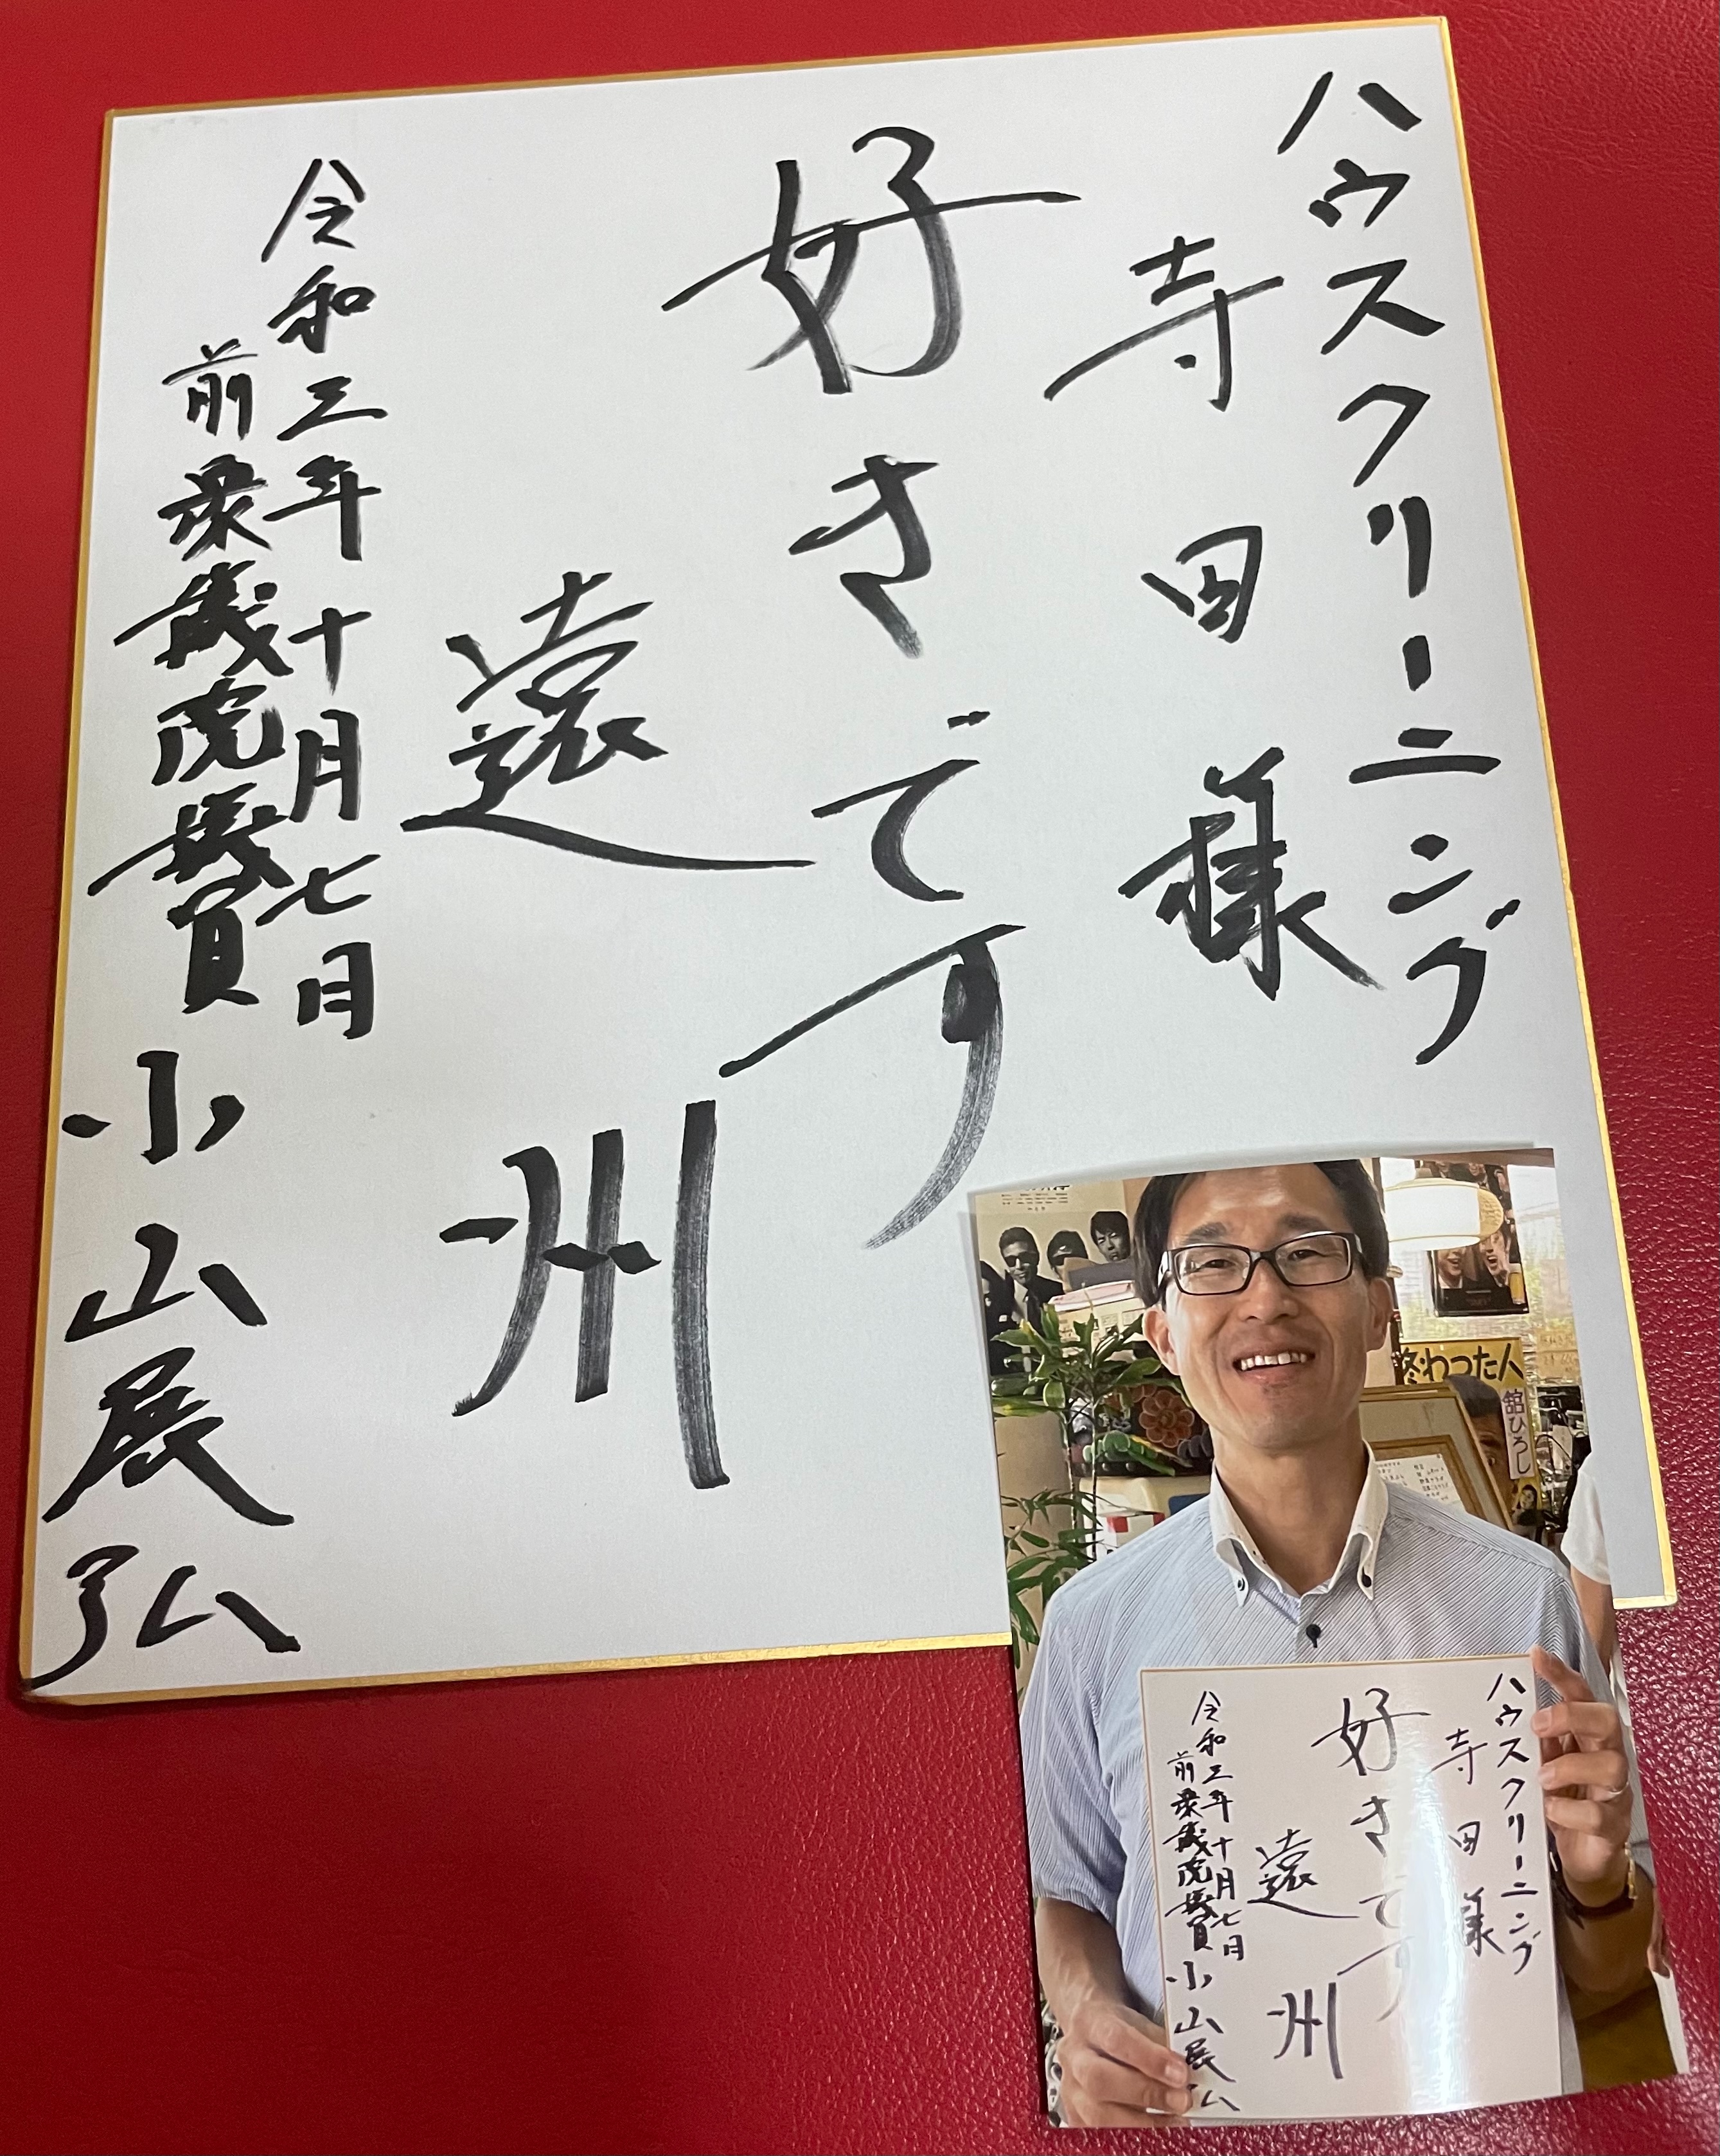 ハウスクリーニング
寺田様
好きです
遠州
令和三年十月七日
前衆議院議員 小山展弘
終わった人
舘ひろし
ハウスクリーニング
寺田様
好きです
遠州
令和三年十月七日
前衆議院議員 小山展弘